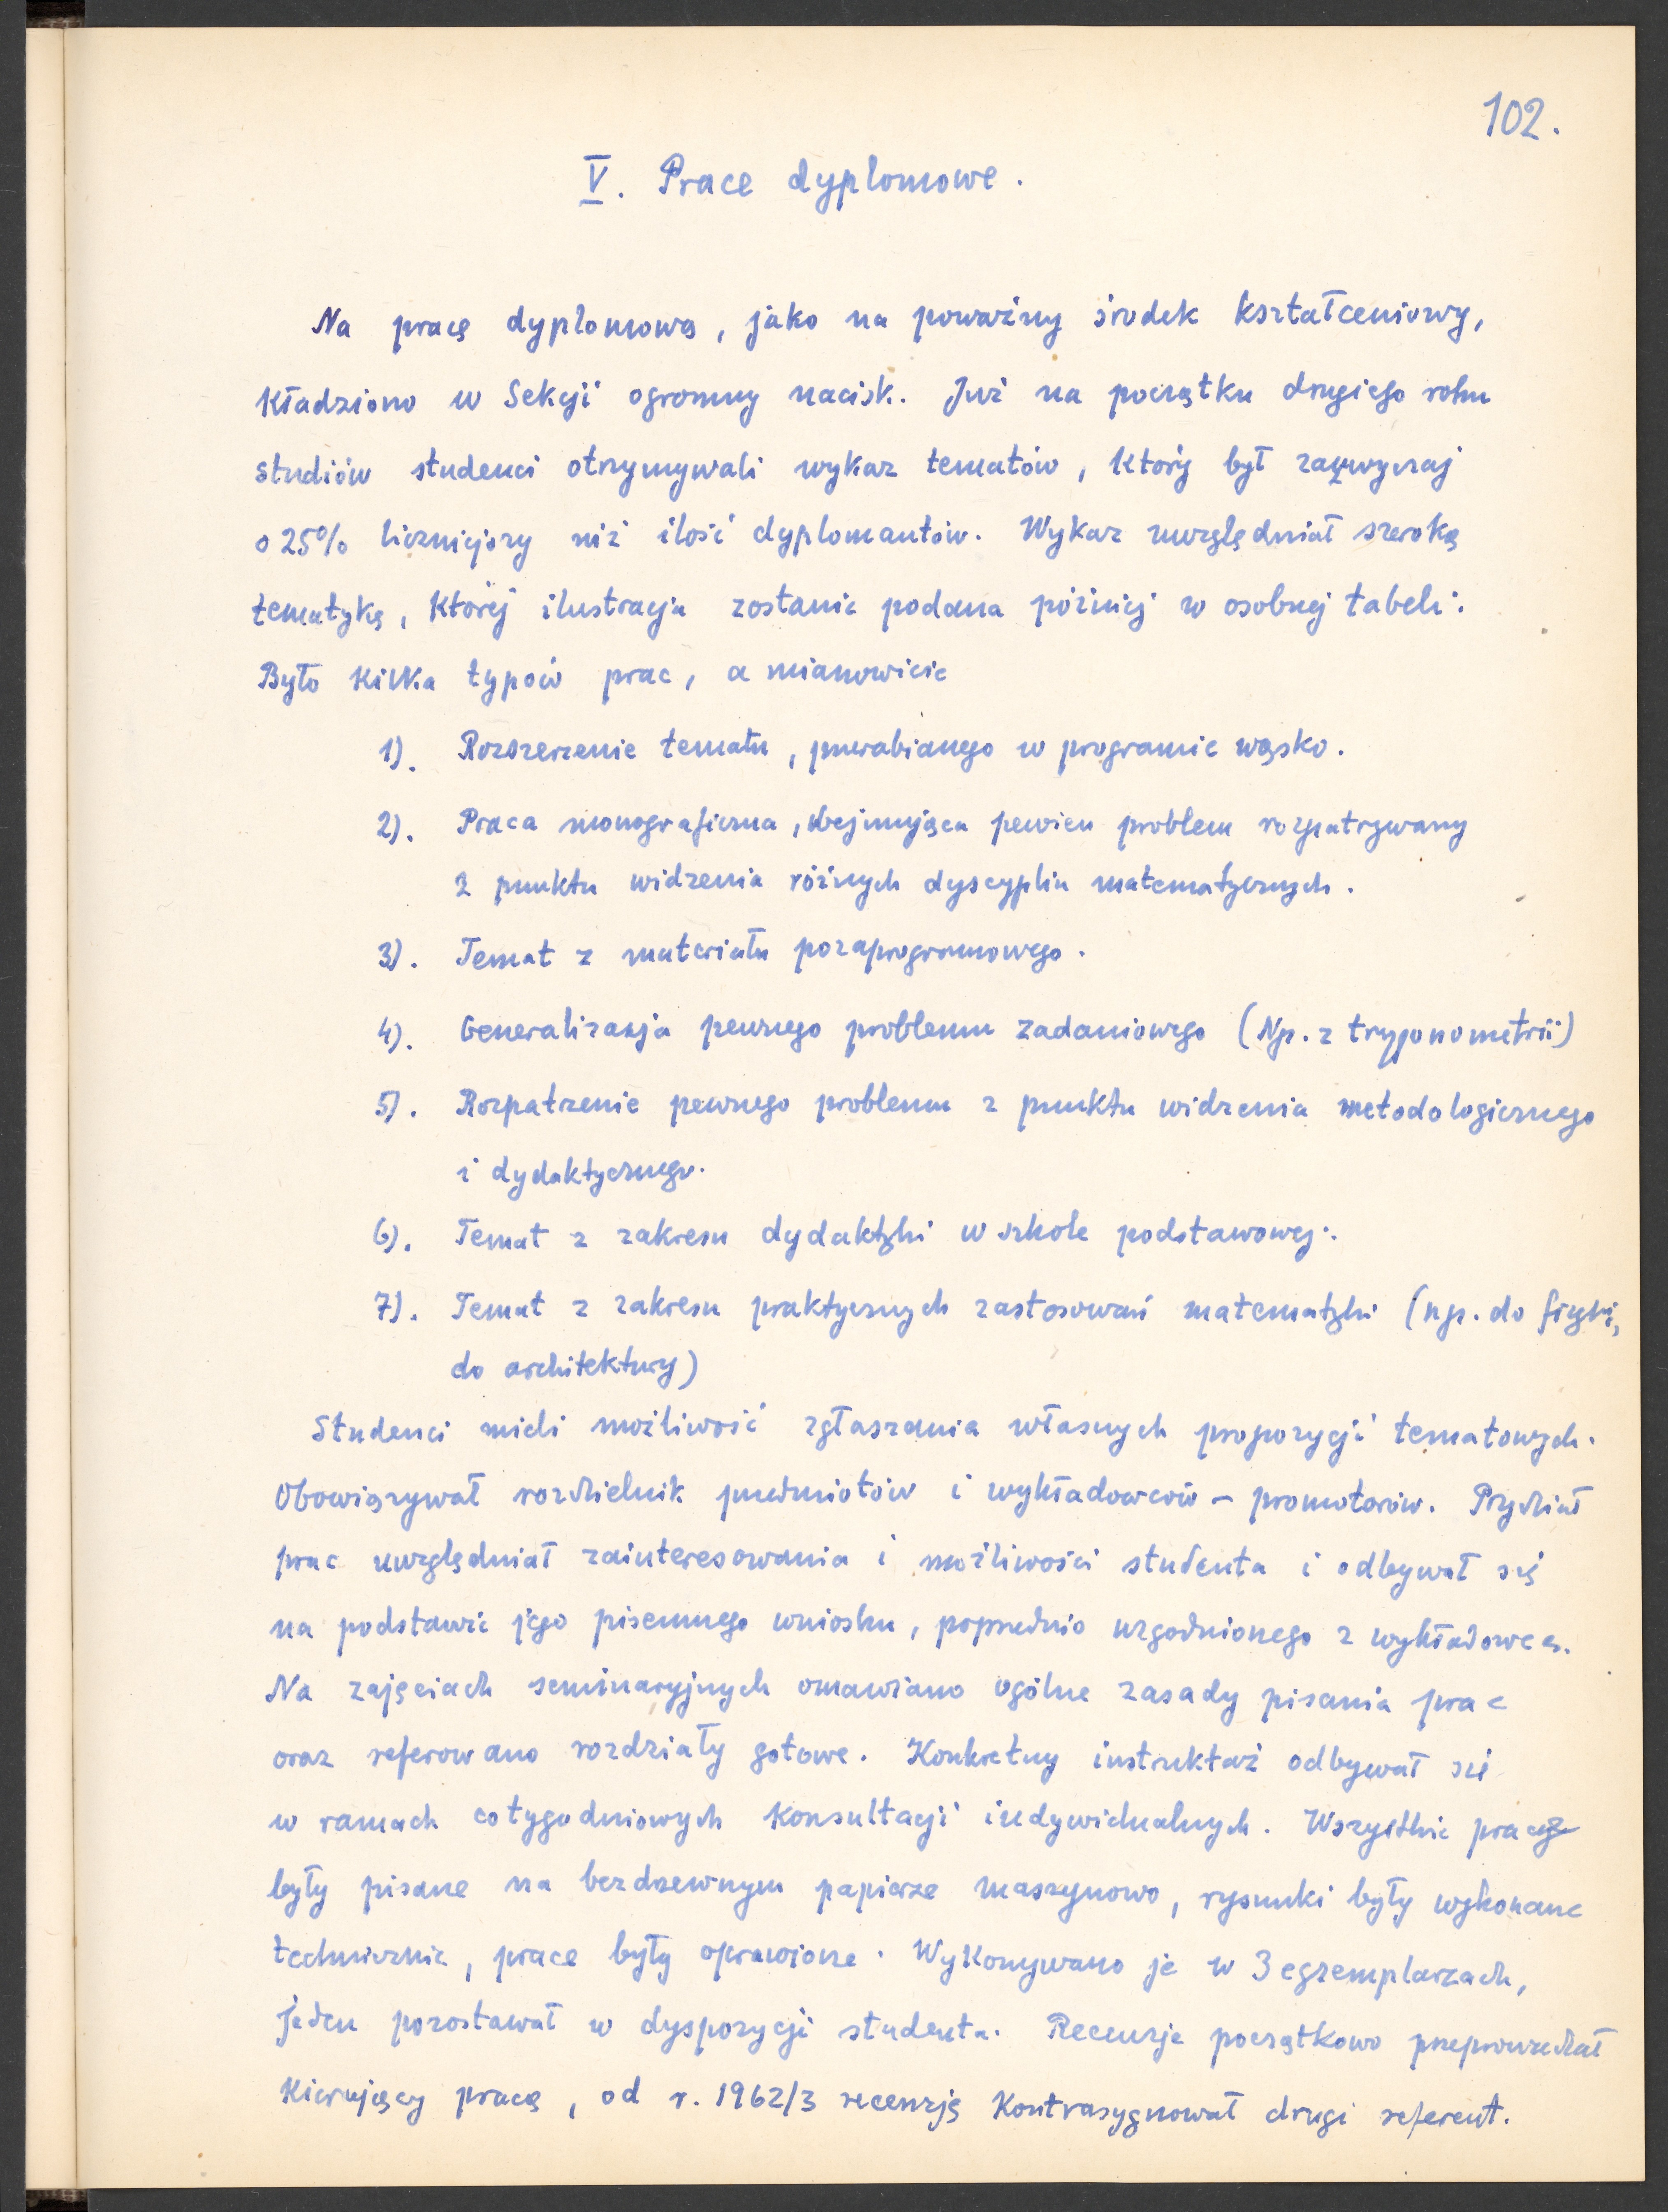 102.
V. Prace dyplomowe.
Na pracę dyplomową, jako na poważny środek kształceniowy,
kładziono w Sekcji ogromny nacisk. Już na początku drugiego roku
studiów studenci otrzymywali wykaz tematów, który był zazwyczaj
o 25% liczniejszy niż ilość dyplomantów. Wykaz uwzględniał szeroką
tematykę, której ilustracja zostanie podana później w osobnej tabeli.
Było kilka typów prac, a mianowicie
1). Rozszerzenie tematu, przerabianego w programie wąsko.
2). Praca monograficzna, obejmująca pewien problem rozpatrywany
z punktu widzenia różnych dyscyplin matematycznych.
3). Temat z materiału pozaprogramowego.
4). Generalizacja pewnego problemu zadaniowego (Np. z trygonometrii)
5). Rozpatrzenie pewnego problemu z punktu widzenia metodologicznego
i dydaktycznego.
6). Temat z zakresu dydaktyki w szkole podstawowej.
7). Temat z zakresu praktycznych zastosowań matematyki (np. do fizyki,
do architektury)
Studenci mieli możliwość zgłaszania własnych propozycji tematowych.
Obowiązywał rozdzielnik przedmiotów i wykładowców – promotorów. Przydział
prac uwzględniał zainteresowania i możliwości studenta i odbywał się
na podstawie jego pisemnego wniosku, poprzednio uzgodnionego z wykładowcą.
Na zajęciach seminaryjnych omawiano ogólne zasady pisania prac
oraz referowano rozdziały gotowe. Konkretny instruktaż odbywał się
w ramach cotygodniowych konsultacji indywidualnych. Wszystkie prace
były pisane na bezdrzewnym papierze maszynowo, rysunki były wykonane
technicznie, prace były oprawione. Wykonywano je w 3 egzemplarzach,
jeden pozostawał w dyspozycji studenta. Recenzje początkowo przeprowadzał
kierujący pracą, od r. 1962/3 recenzję kontrasygnował drugi referent.